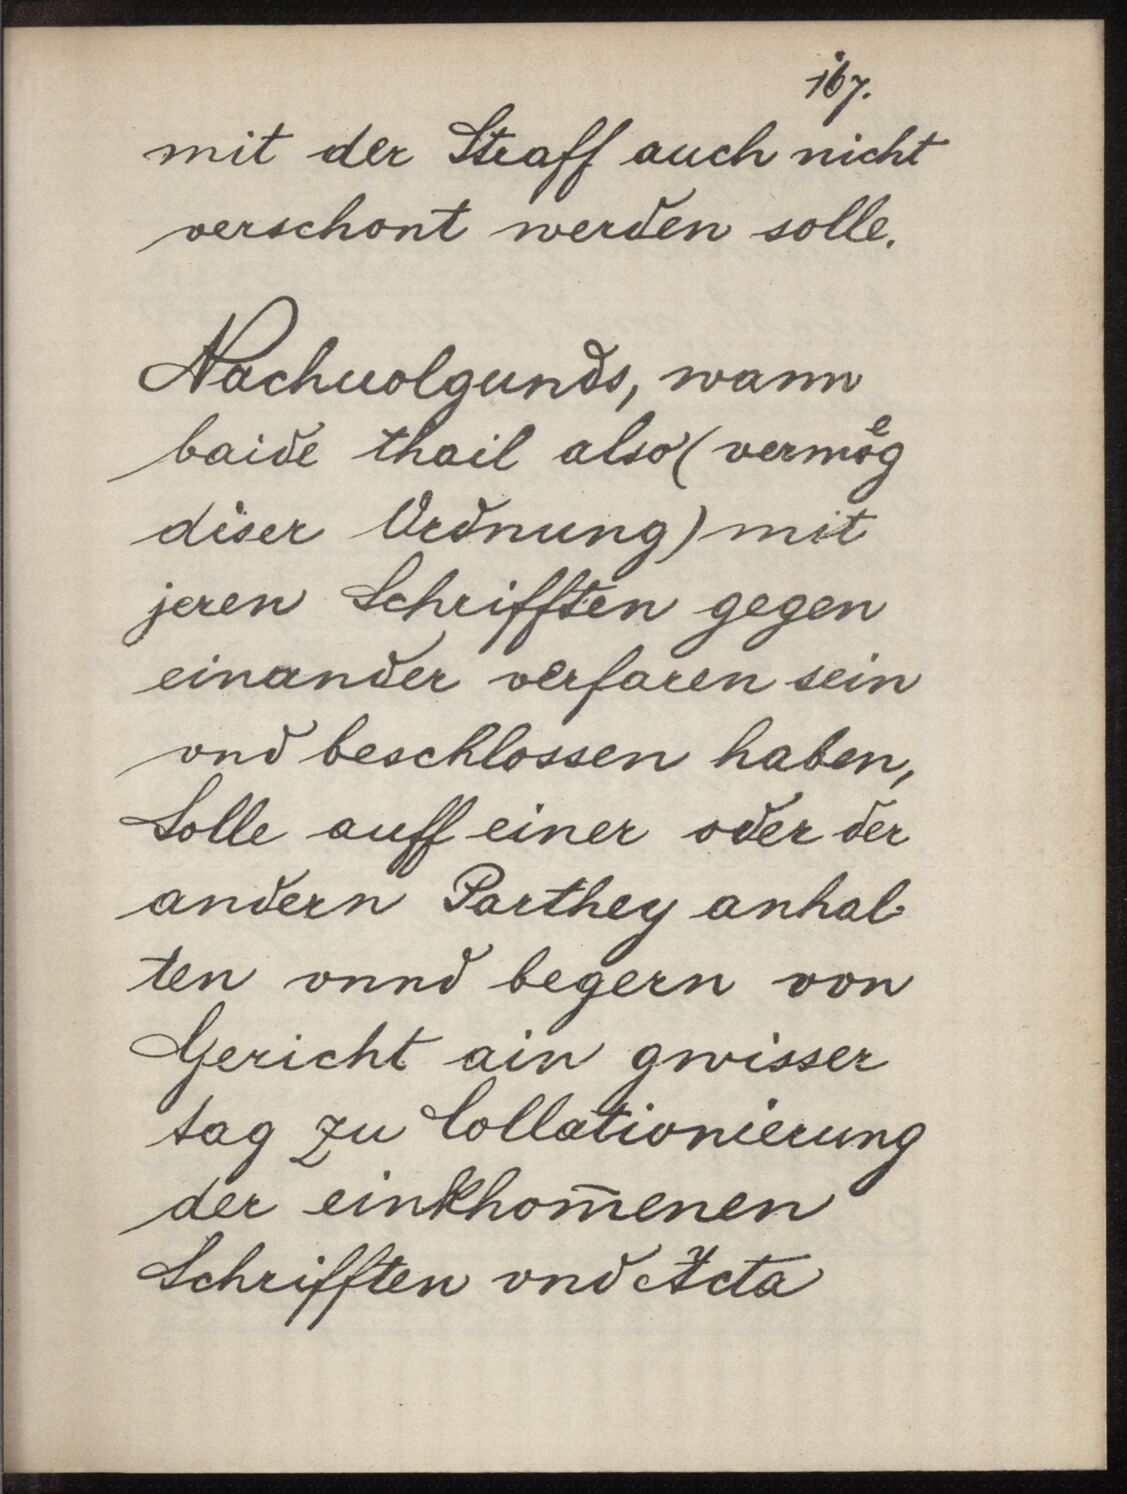 167.
mit der Straff auch nicht
verschont werden solle.
Nachuolgunds, wann
baide thail also (vermoͤg
diser Ordnung) mit
jeren Schrifften gegen
einander verfaren sein
vnd beschlossen haben,
Solle auff einer oder der
andern Parthey anhal-
ten vnnd begern von
Gericht ain gwisser
tag zu Collationierung
der einkhom̄enen
Schrifften vnd Acta